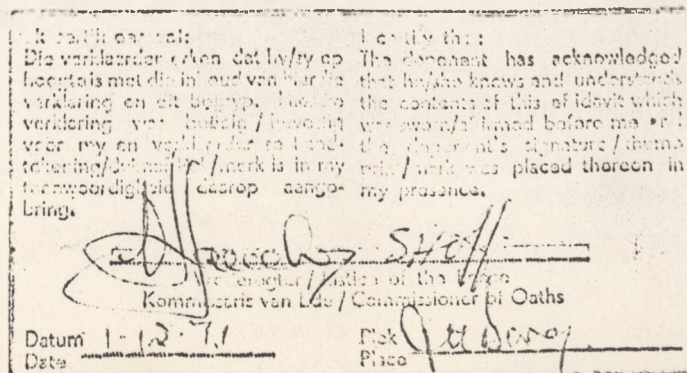 Die verklaarder erken dat hy/sy op
hoogte is met die inhoud van hierdie
verklaring en dit begryp.
verklaring was beëdig / bevestig
voor my en verklaarder se hand-
tekening / merk is in my
teenwoordigheid daarop aange-
bring.
I certify that:
The deponent has acknowledged
that he/she knows and understands
the contents of this affidavit which
was sworn/affirmed before me and
the deponent's signature / thumb
print / mark was placed thereon in
my presence.
Vrederegter / Justice of the Peace
Kommissaris van Ede / Commissioner of Oaths
Datum 1-12-71
Date
Plek
Place